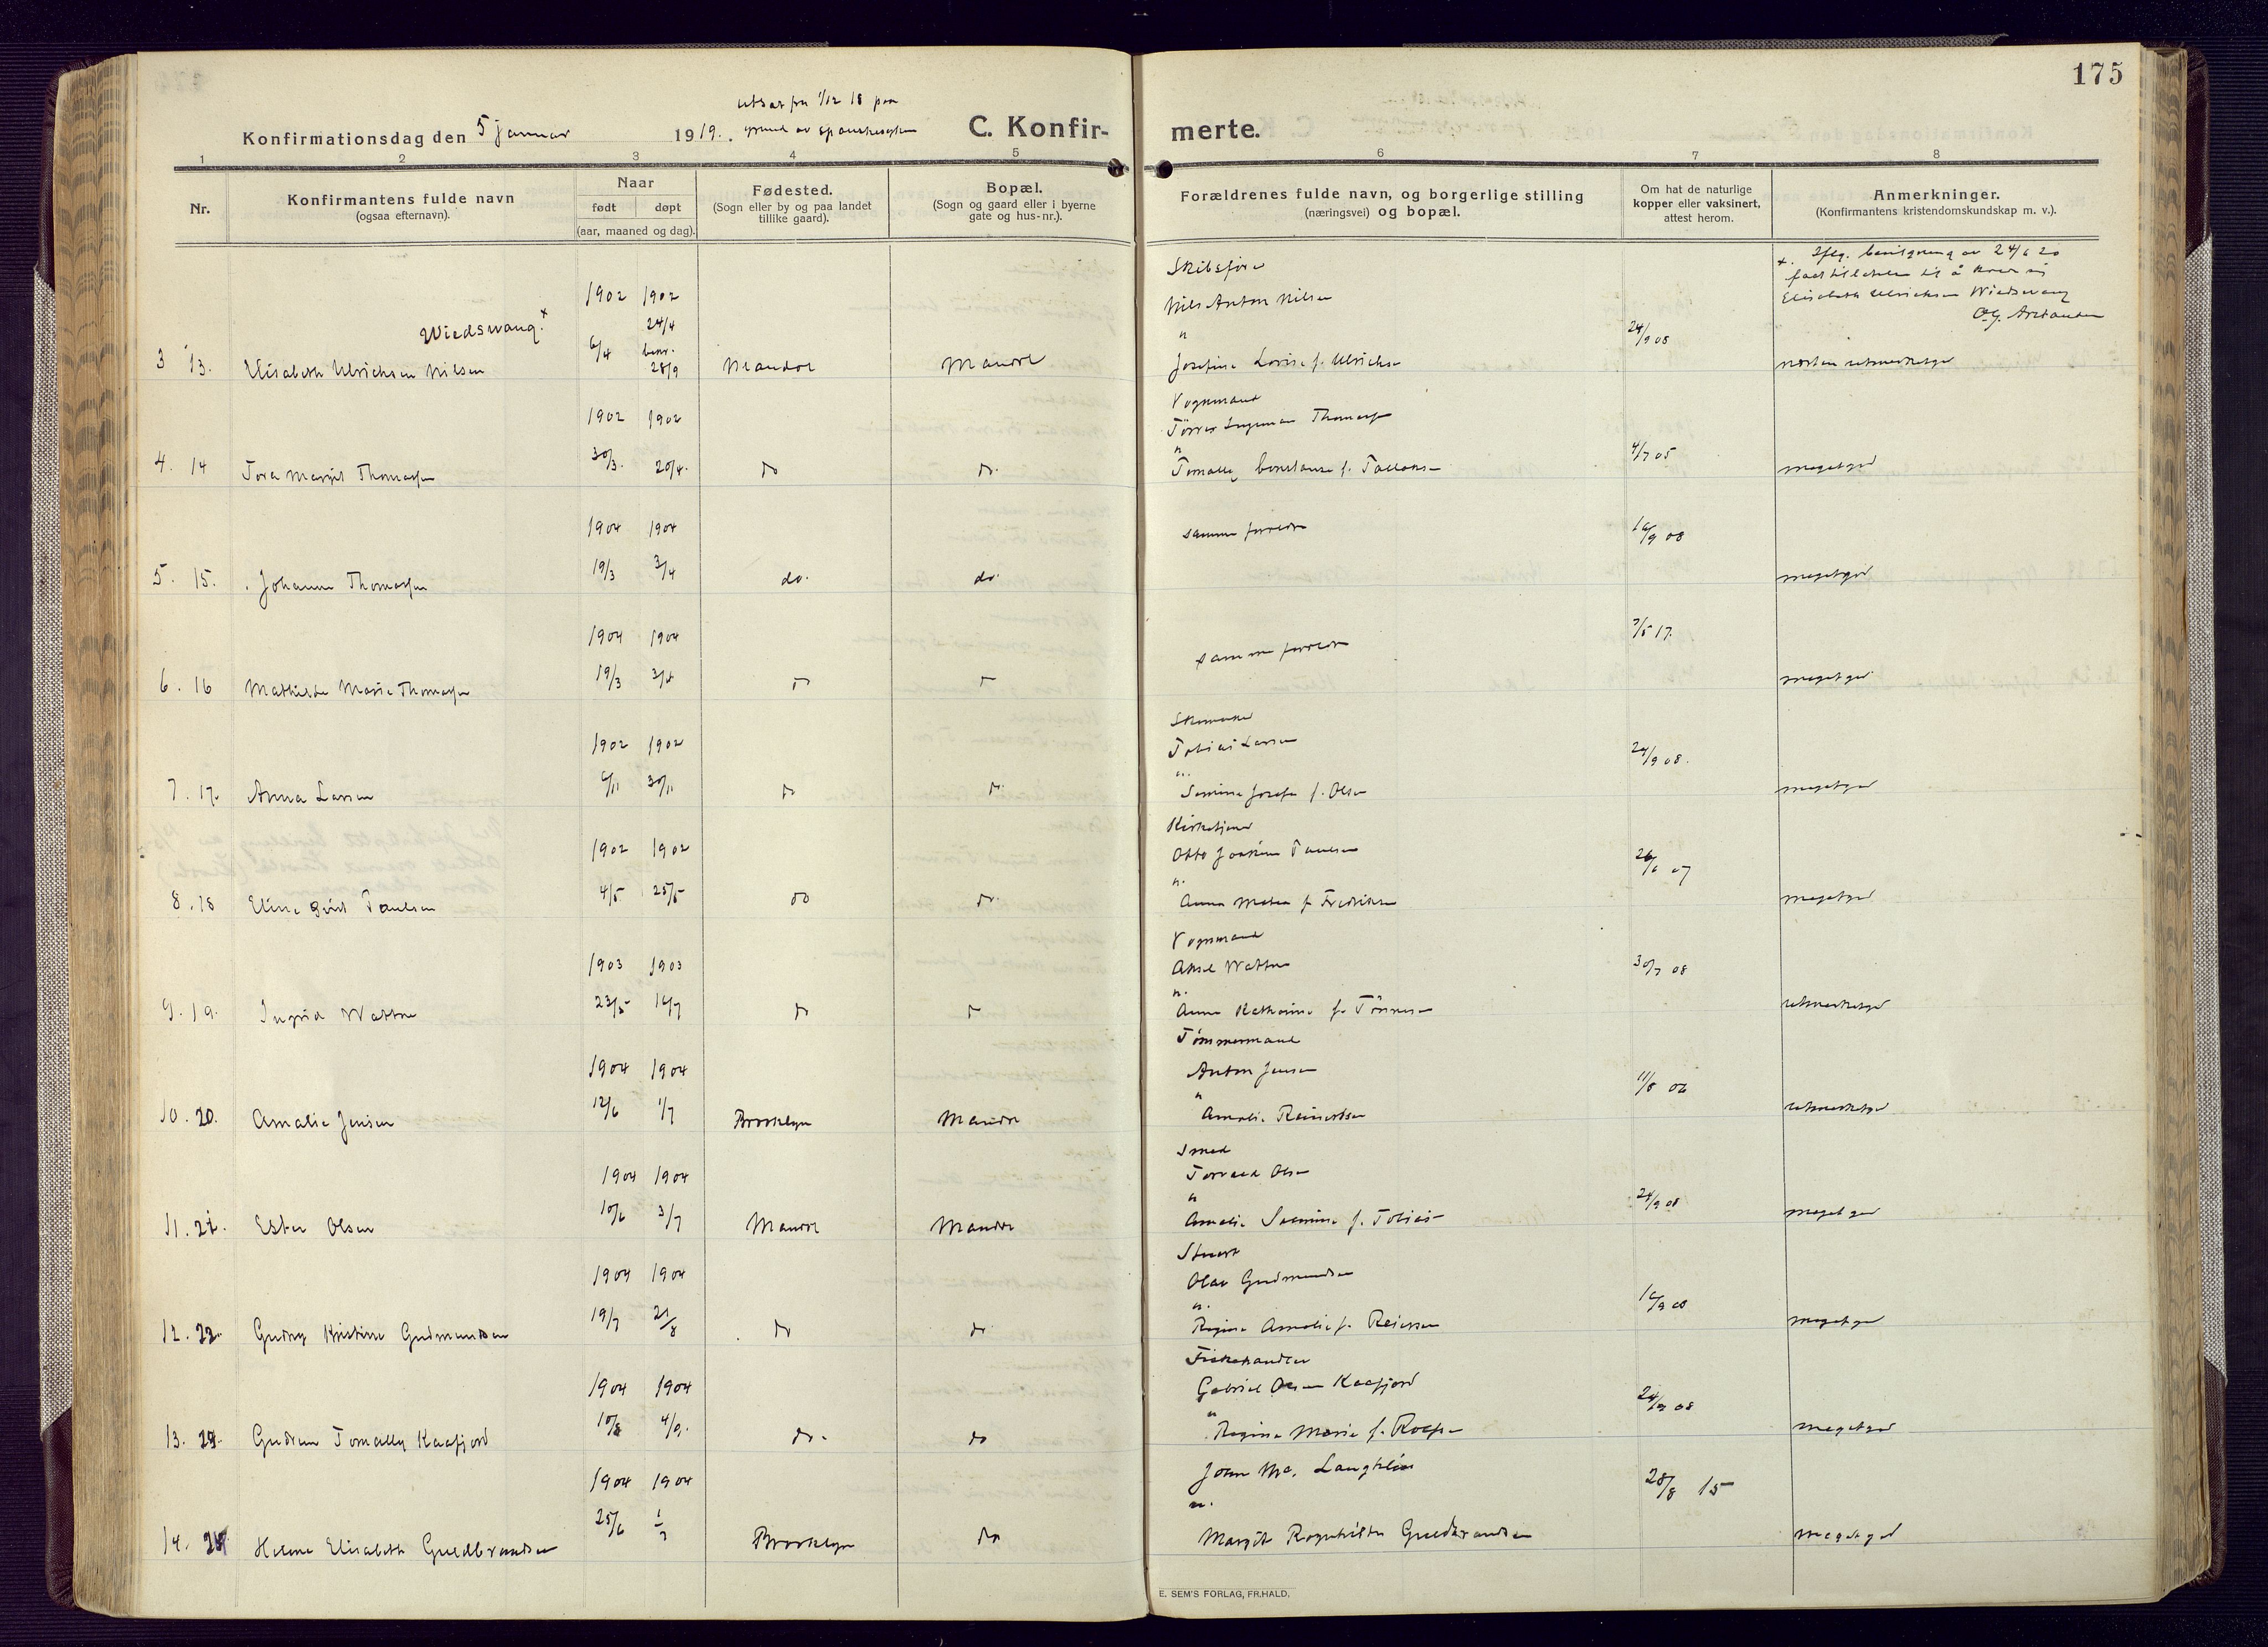 175
utsat fra 1/12 18 paa
Konfirmationsdag den 5 januar 1919. grund av spanskesyken
C. Konfir-
merte.
1 2 3 4 5 6 7 8
Nr.
Konfirmantens fulde navn
(ogsaa efternavn).
Naar
født døpt
(aar, maaned og dag).
Fødested.
(Sogn eller by og paa landet
tillike gaard).
Bopæl.
(Sogn og gaard eller i byerne
gate og hus-nr.).
Forældrenes fulde navn, og borgerlige stilling
(næringsvei) og bopæl.
Om hat de naturlige
kopper eller vaksinert,
attest herom.
Anmerkninger.
(Konfirmantens kristendomskundskap m. v.).
Skibsfører
+. Ifлg. bevilgning av 24/6 20
til å
Elisabeth Ulrichsen Wiedswang
1902 1902
Nils Anton Nilsen
Wiedswang.+
24/4
"
24/9 08
6/4 28/9
3 13. Elisabeth Ulrichsen Nilsen Mandal Mandal Josefine Lovise f. Ulrichsen næsten utmerketgod
Vognmand
1902 1902 Thomassen
"
4. 14 Tora Margit Thomassen 30/3. 20/4. do do. Tomally Constanse f. 4/7 05 megetgod
1904 1904 samme forældre 16/9 08
5. 15. Johanne Thomassen 19/3 3/4 do. do. megetgod
1904 1904 samme forældre 7/5 17.
6. 16 Mathilde Marie Thomassen 19/3 3/4 do do megetgod
Skomaker
1902 1902 Tobias Larsen 24/9 08.
"
7. 17. Anna Larsen 6/11 30/11 do do. Josefa f. Olsen megetgod
Kirketjener
1902 1902 Otto Joakim Paulsen 26/6 07
"
8. 18 Eline Paulsen 4/5 25/5 do do. Anna f. Fredriksen megetgod
Vognmand
1903 1903 Aksel Wattne 30/7 08
"
9. 19. Ingrid Wattne 23/5 16/7 do do Anna Kathrine f. Tönnesen utmerketgod
Tömmermand
1904 1904 Anton Jensen 11/8 06
"
10. 20. Amalie Jensen 12/6 1/7 Brooklyn Mandal Amalie Reinertsen utmerketgod
Smed
1904 1904 Olsen 24/9 08
"
11. 21. Ester Olsen 10/6 3/7 Mandal Mandal Amalie f. Tobias- megetgod
Stuert
1904 1904 Olav Gudmundsen 16/9 08
"
12. 22. Gudny Kristine Gudmundsen 19/7 21/8 do do Regine Amalie f. Reiersen megetgod
Fiskehandler
1904 1904 Gabriel Olsen Kaafjord 24/9 08
"
13. 23. Gudrun Tomally Kaafjord 10/8 4/9. do. do Regine Marie f. megetgod
1904 1904 John Mc. Laughlin 28/8 15
"
14. 24 Helene Elisabeth Guldbrandsen 25/6 Brooklyn do Margit Ragnhilda Guldbrandsen megetgod
E. SEM'S FORLAG, FR.HALD.